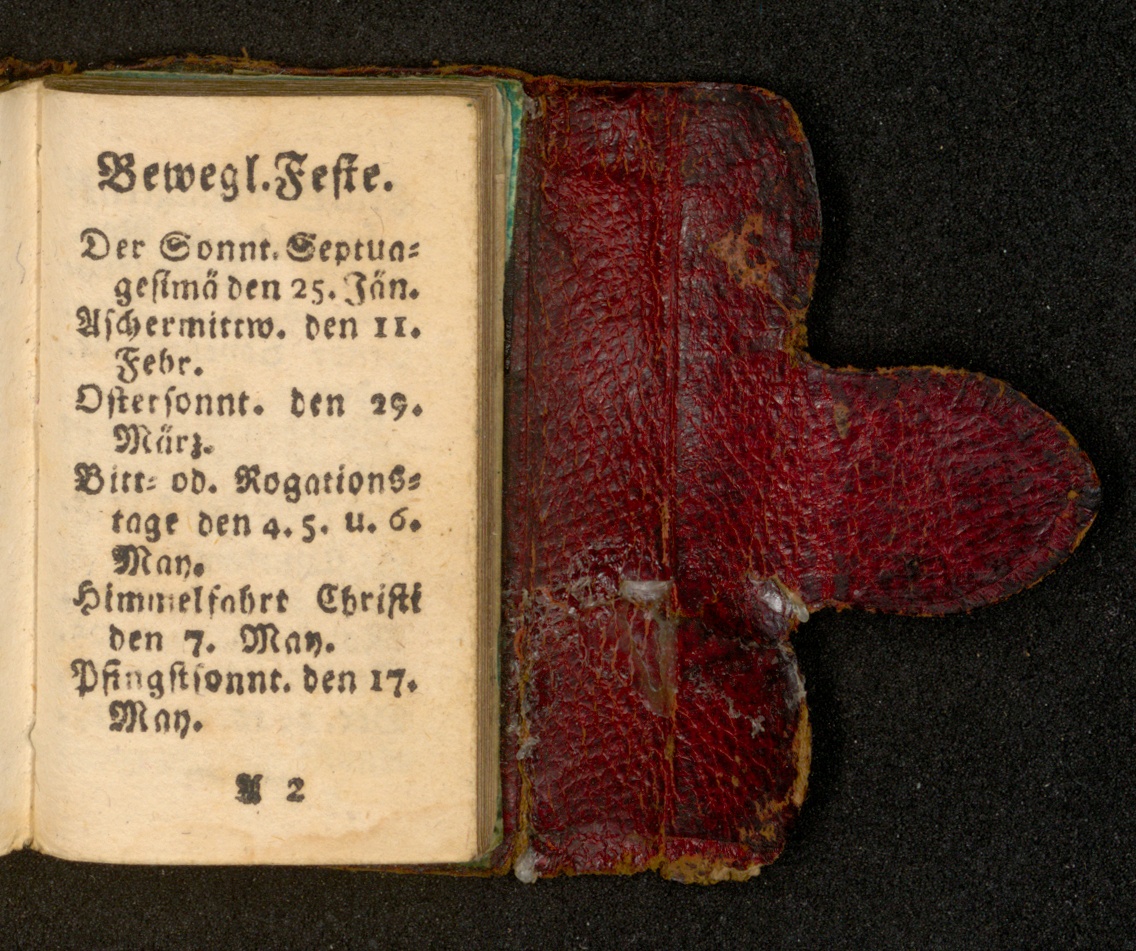 Bewegl. Feste.
Der Sonnt. Septua-
gesimä den 25. Jän.
Aschermittw. den 11.
Febr.
Ostersonnt. den 29.
März.
Bitt- od. Rogations-
tage den 4. 5. u. 6.
May.
Himmelfahrt Christi
den 7. May.
Pfingstsonnt. den 17.
May.
A 2